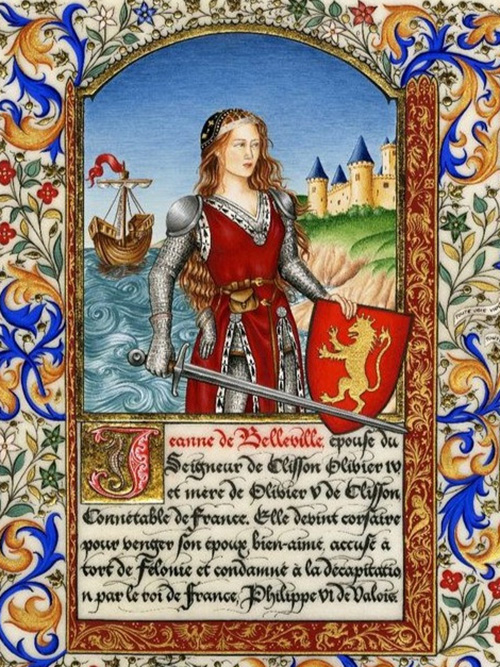 Jeanne de Belleville, epouse du
Seigneur de Clisson Olivier IV
et mere de Olivier V de Clisson,
Connétable de France. Elle devint corsaire
pour venger son époux bien-aimé, accusé à
tort de Félonie et condamné à la décapitatio
n par le roi de France, Philippe VI de Valois.